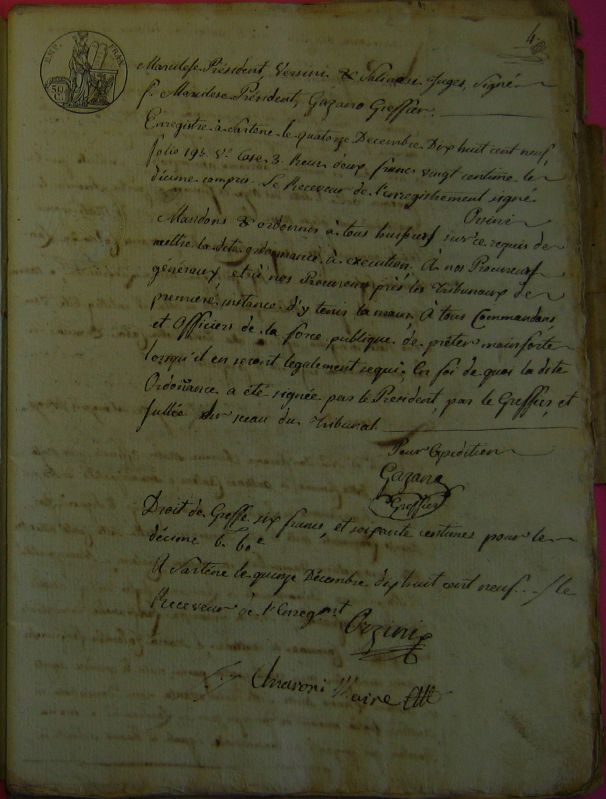 EMP. FRAN.
50 C.
4
Président, Vesini & Juges, Signé
f. Président, Gazano Greffier.
Enregistré à Sartène le quatorze Decembre Dix huit cent neuf,
folio 194 V° Case 3. Reçu deux francs vingt centime le
dicime compris. Le Receveur de l'enregistrement signé
Orsini
Mandons & ordonnons à tous huissiers sur ce requis de
mettre la dite ordonnance à execution. A nos Procureurs
généraux, et à nos Procureurs près les Tribunaux de
première instance d'y tenir la main, A tous Commandans,
et Officiers de la force publique de prêter mainforte
lorsqu'il en seront légalement requis, En foi de quoi la dite
Ordonnance a été signée par le Président, par le Greffier, et
sullée du sceau du Tribunal
Pour Expedition
Gazano
Greffier
Droit de Greffe six francs, et soixante centimes pour le
décime
A Sartène le quinze Décembre dix huit cent neuf. / le
Receveur de l'Enregmt
Orzini
Maire